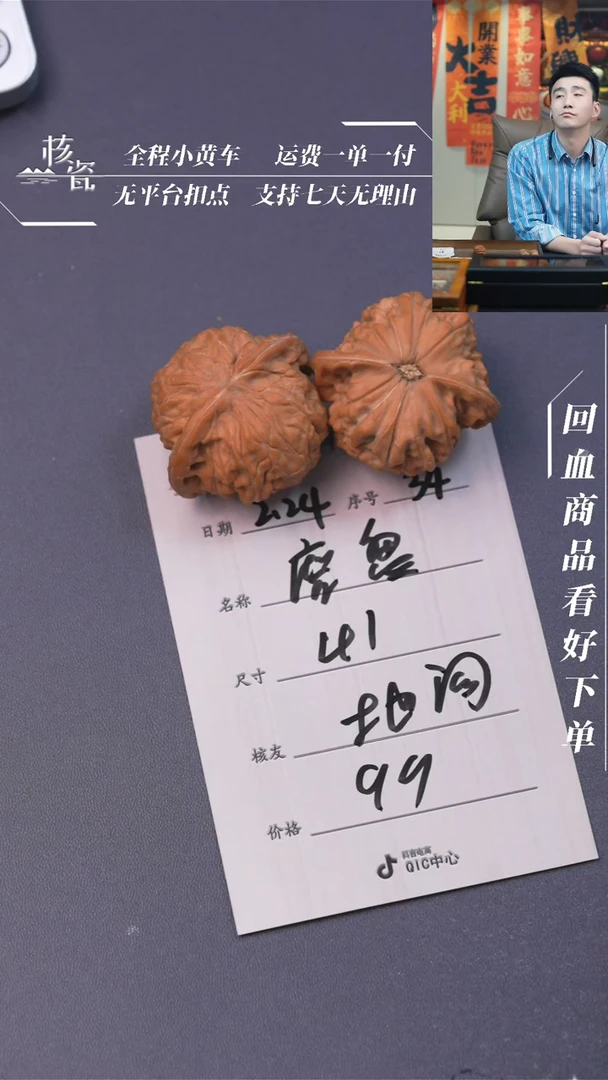 核瓷
全程小黄车 运费一单一付
无平台扣点 支持七天无理由
開業
大吉
大利
事事如意
心
财
回血商品看好下单
日期 2.24 序号 34
名称 魔鬼
尺寸 41
核友
价格 99
抖音电商
QIC中心